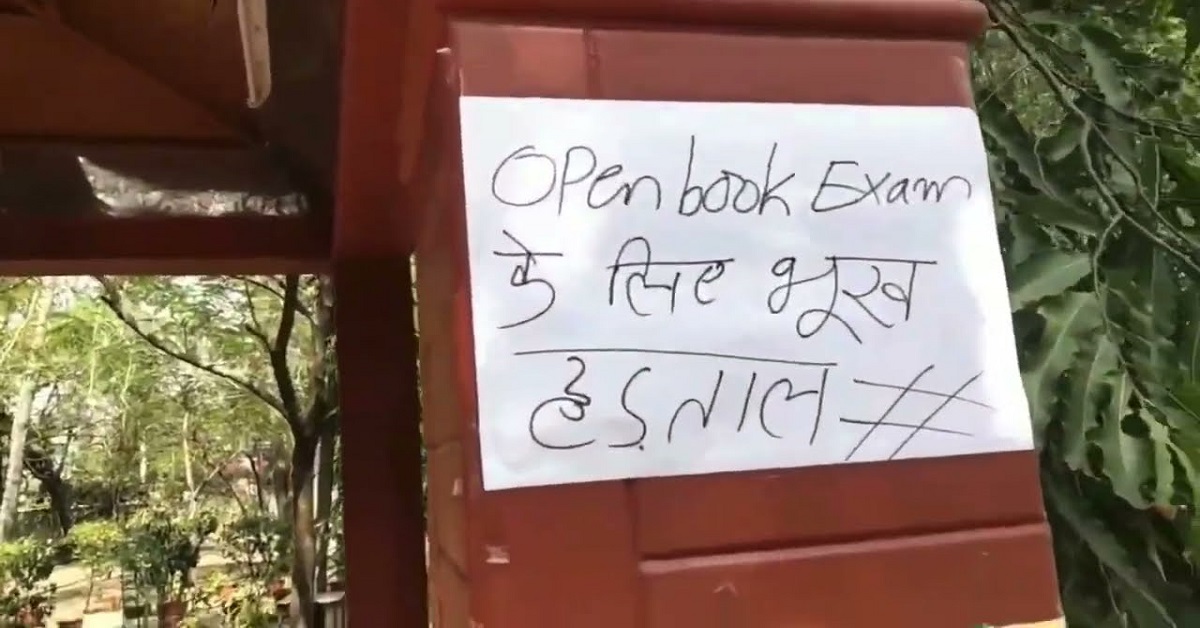 Open book Exam
के लिए भूख
हड़ताल #